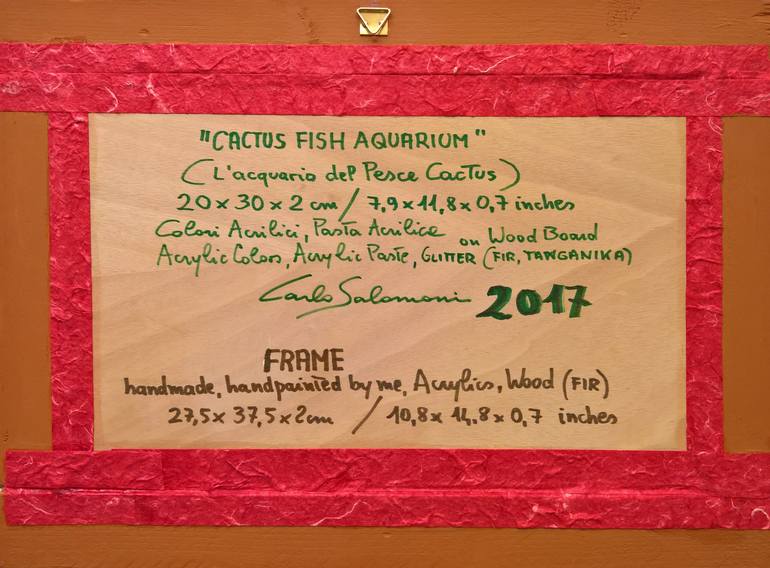 "CACTUS FISH AQUARIUM"
(L'acquario del Pesce Cactus)
20 x 30 x 2 cm / 7,9 x 11,8 x 0,7 inches
Colori Acrilici, Pasta Acrilica on Wood Board
Acrylic Colors, Acrylic Paste, GLITTER (FIR, TANGANIKA)
Carlo Salomoni 2017
FRAME
handmade, handpainted by me, Acrylics, Wood (FIR)
27,5 x 37,5 x 2 cm / 10,8 x 14.8 x 0,7 inches